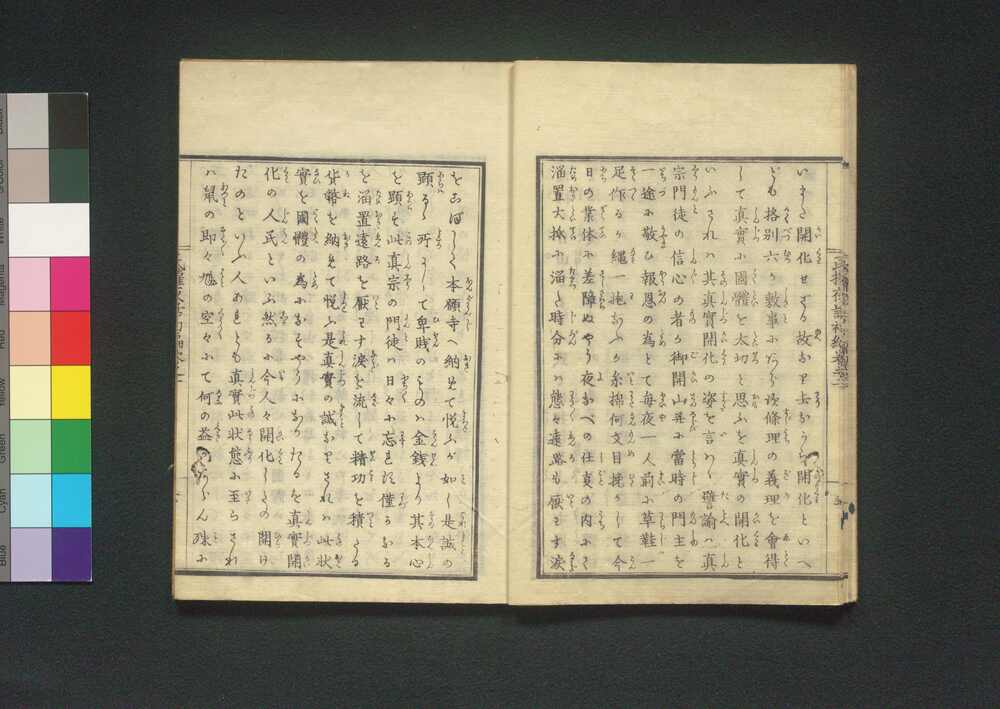 いまだ開化せざる故なり去ながら開化といへ
ども格別六ヶ敷事にあらず條理の義理を會得
して真實に國體を大切と思ふを真實の開化と
いふされバ其真實開化の姿を言わバ譬諭バ真
宗門徒の信心の者ヶ御開山并に當時の門主を
一途に敬ひ報恩の為とて毎夜一人前に草鞋一
足作るヶ縄一拖なふヶ糸綿何文目挽ヶして今
日の業体に差障ぬやう夜なべの仕夏の内にて
溜置大抵に溜る時分にハ態々遠路も厭ハず涙
をこぼして本願寺へ納めて悦ぶが如し是誠の
顕るゝ所にして卑賎のものハ金銭より其本心
を顕す此真宗の門徒ハ日々に忘れず僅かなる
を溜置遠路を厭ハず涙を流して積功を積たる
貨幣を納めて悦ぶ是真實の誠なりされバ此状
實を國體の為になすやうになりたるを真實開
化の人民といふ然るに今人々開化したの開け
たのといふ人あれども真實此状態に至らざれ
バ鼠の即々馗の空々にて何の益かあらん殊に
Blue
Cyan
Green
Yellow
Red
Magenta
White
3/Color
Black